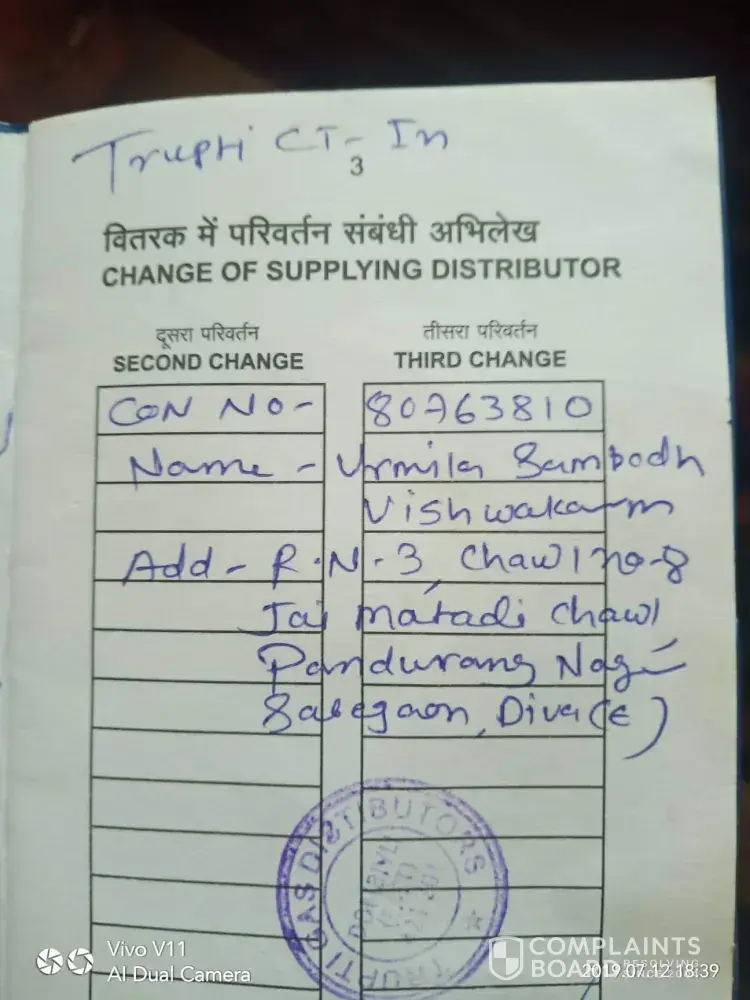 Trupti CT-In
3
वितरक में परिवर्तन संबंधी अभिलेख
CHANGE OF SUPPLYING DISTRIBUTOR
दूसरा परिवर्तन
SECOND CHANGE
तीसरा परिवर्तन
THIRD CHANGE
CON NO- 80763810
Name - Urmila Sambodh
Vishwakarm
Add - R.N-3, Chawl no-8
Jai matadi chawl
Pandurang Nagar
Sabegaon, Diva (E)
TRUPTI GAS DISTRIBUTORS
Vivo V11
AI Dual Camera
COMPLAINTS
BOARD
RESOLVING
2019.07.12 18:39